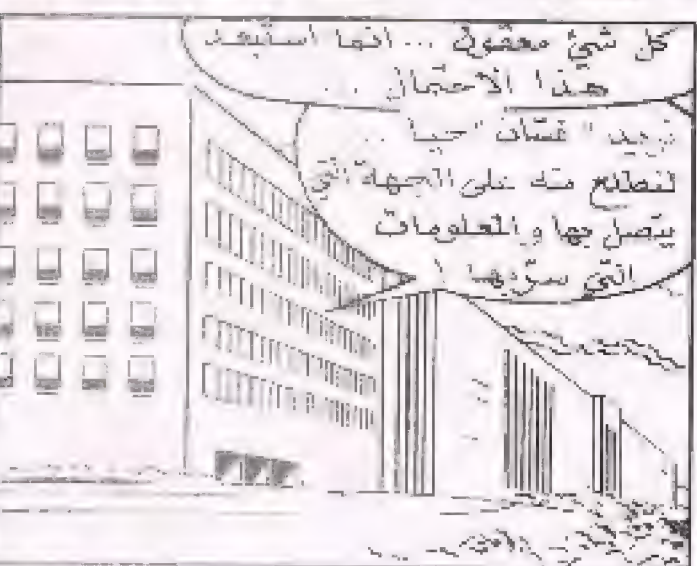 كل شيْ معقول ... انما استبعد
هذا الاحتمال ...
نريد "غسّان" حيا ..
لنطلع منه على الجهة التي
يتصل بها و المعلومات
التي سرّبها !